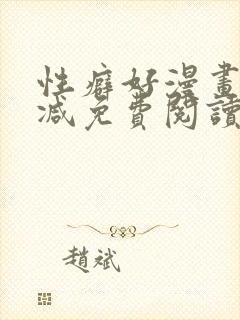 性癖好漫畫
減免費閱讀
趙斌